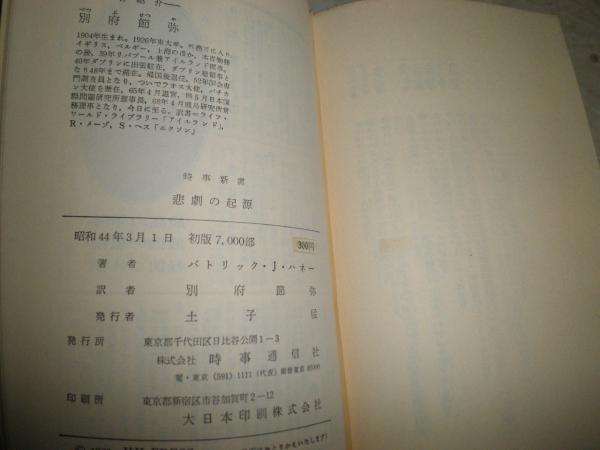 紹介
別府節弥
べっ ぷ せつ や
1904年生まれ。1926年東大卒。外務省に入り、
イギリス、ベルギー、上海のほか、本省勤務
の後、39年リバプール兼アイルランド領事。
40年ダブリンに出張駐在、ダブリン総領事と
なり48年まで滞在。帰国後退任。52年国会専
門調査員となり、ついでラオス大使、バチカ
ン大使を歴任、65年4月退官、同5月日本国
際問題研究所理事長、68年4月
務理事となり、今日に至る。訳書＝ライフ・
ワールド・ライブラリー「アイルランド」、
R・メーゾ、S・ヘス「ニクソン」
時事新書
悲劇の起源
昭和44年3月1日 初版7,000部 300円
著者 パトリック・J・ハネー
訳者 別府節弥
発行者 土子猛
発行所 東京都千代田区日比谷公園1-3
株式会社 時事通信社
電・東京(591)1111(代表)振替東京85000
印刷所 東京都新宿区市谷加賀町2-12
大日本印刷株式会社